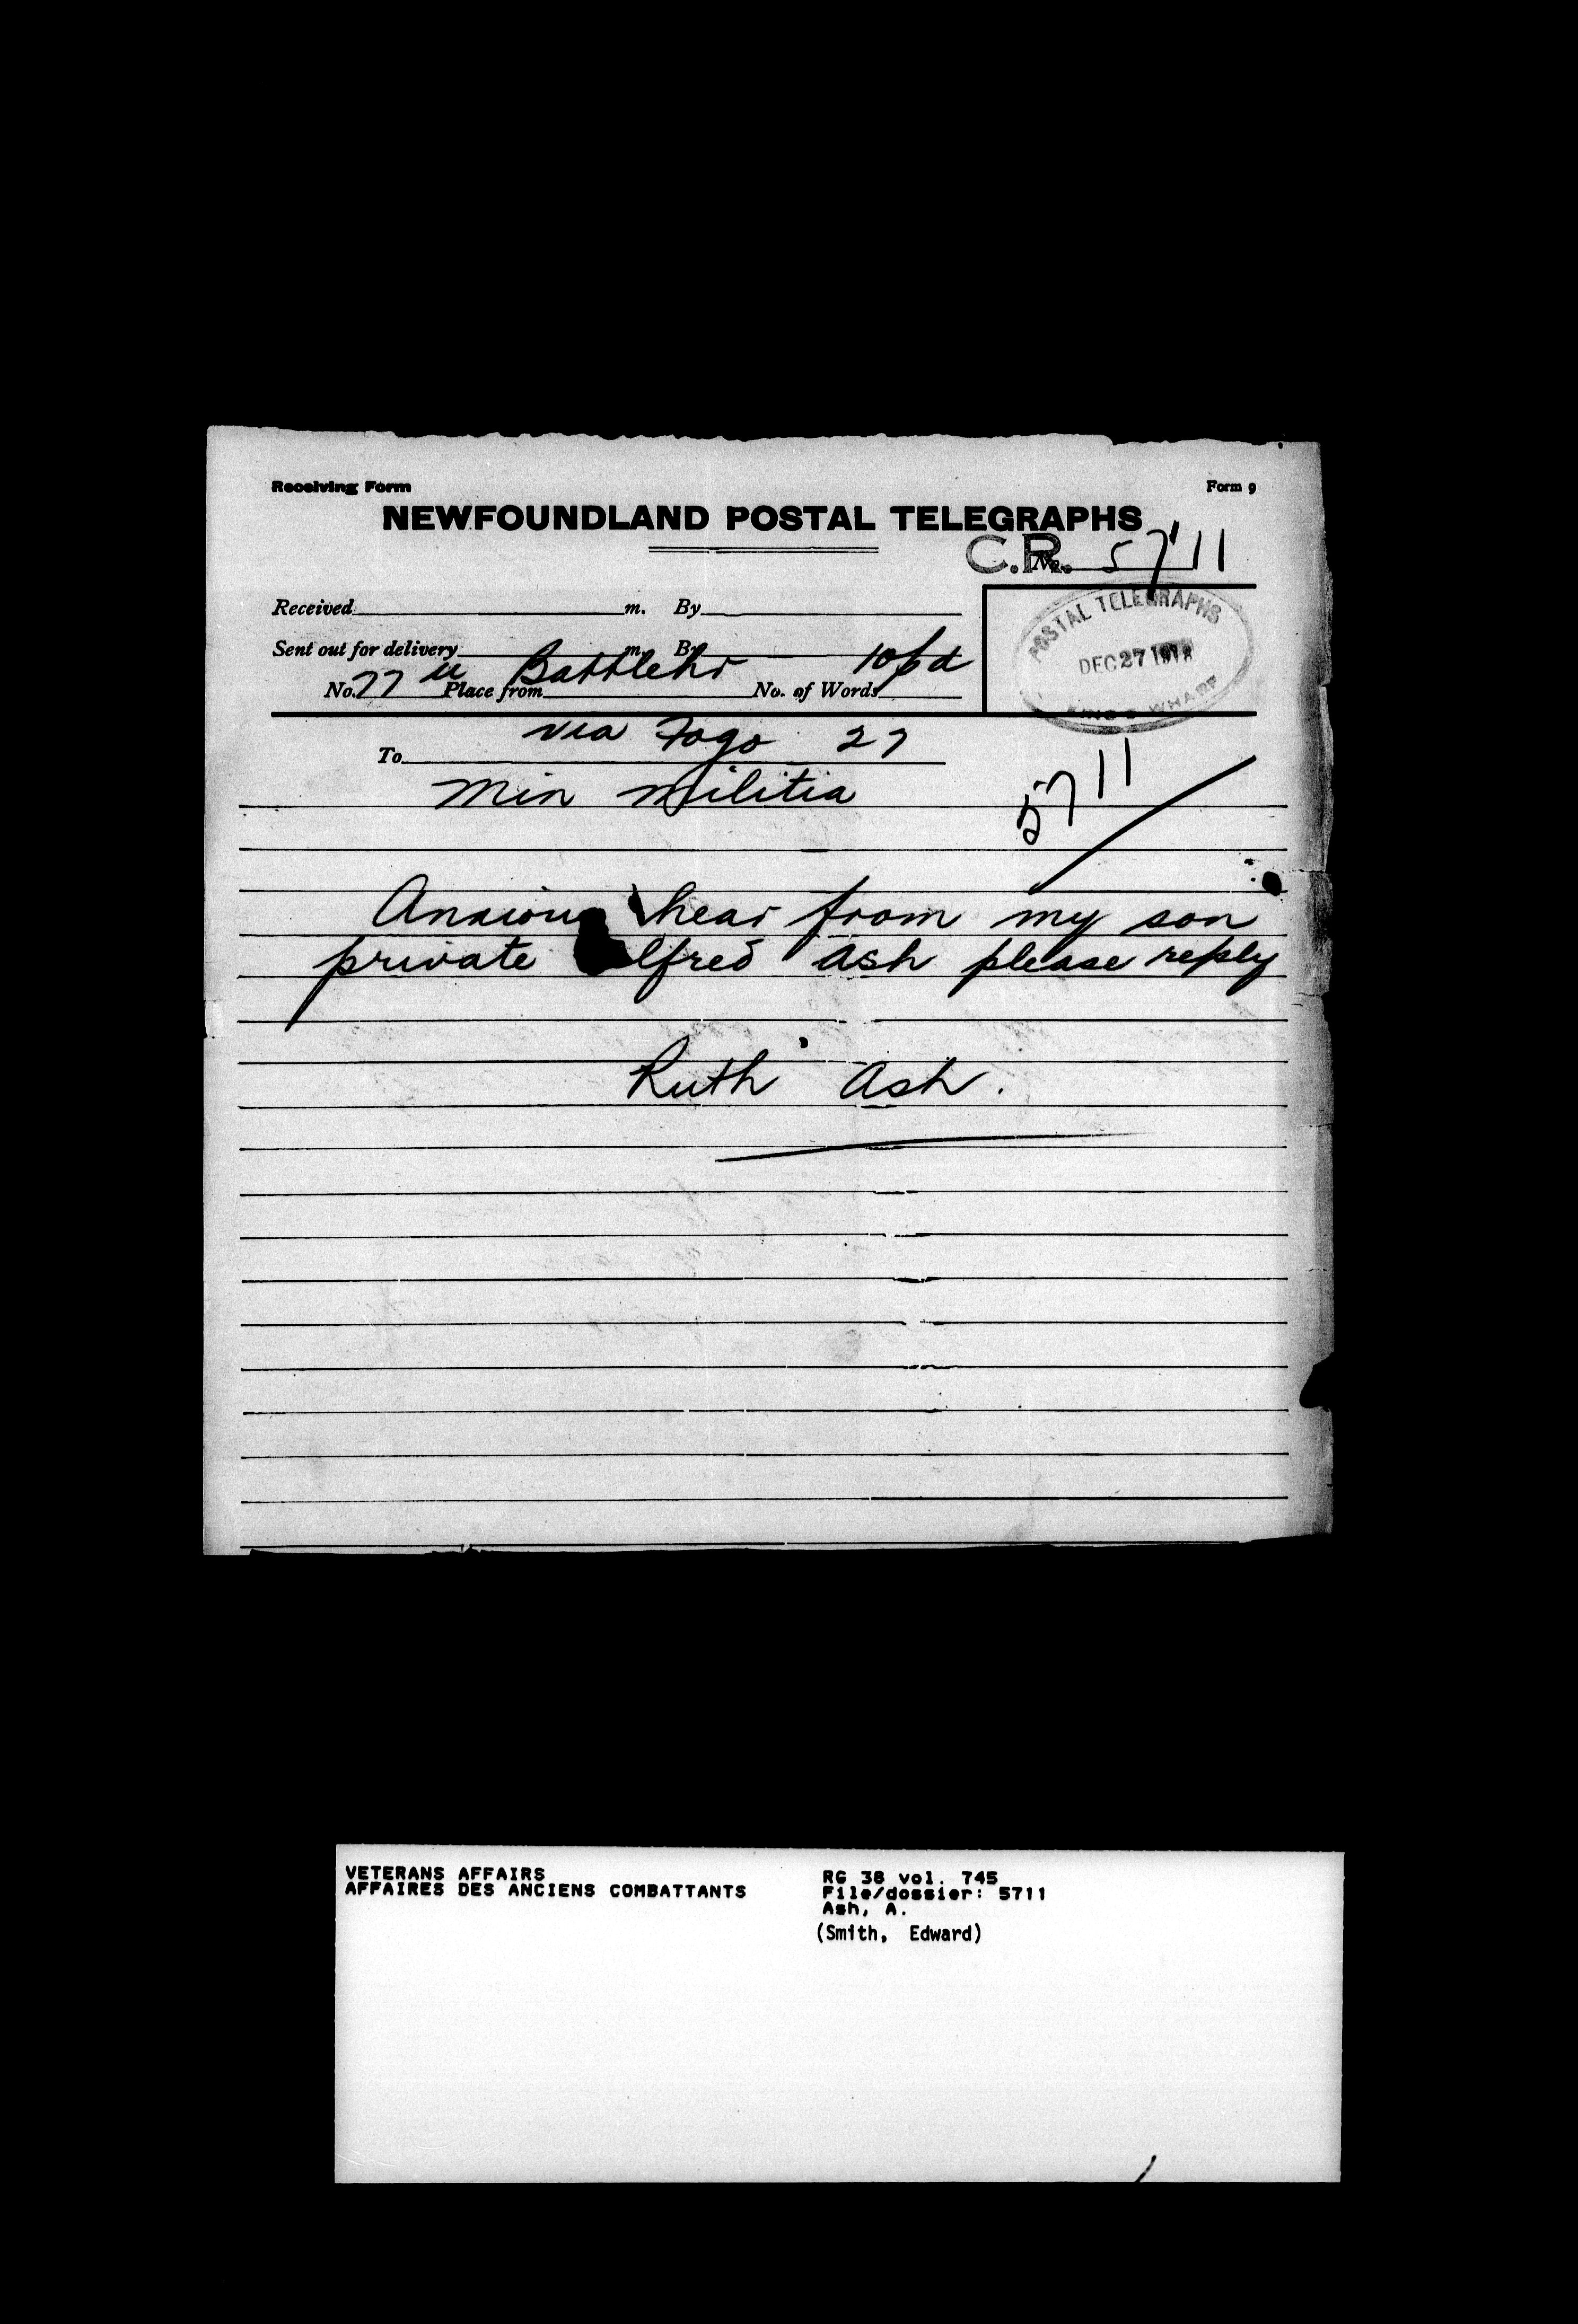 Receiving Form Form 9
NEWFOUNDLAND POSTAL TELEGRAPHS
C.R. No. 5711
Received m. By
Sent out for delivery m. By
No. 77 Place from Battlehr No. of Words 10 pd
POSTAL TELEGRAPHS
DEC 27 1918
KING'S WHARF
via Fogo 27
To
Min Militia
5711
Anxious hear from my son
private Alfred Ash please reply
Ruth Ash.
VETERANS AFFAIRS
AFFAIRES DES ANCIENS COMBATTANTS
RG 38 vol. 745
File/dossier: 5711
Ash, A.
(Smith, Edward)